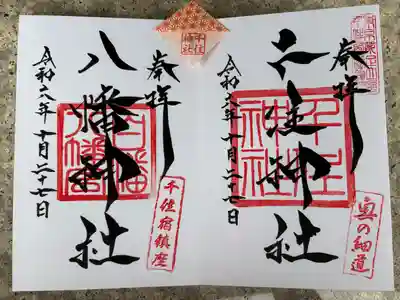 奉拝
千住神社
令和六年十月二十七日
千住神社
奥の細道
奉拝
八幡神社
令和六年十月二十七日
八幡
千住宿鎮座